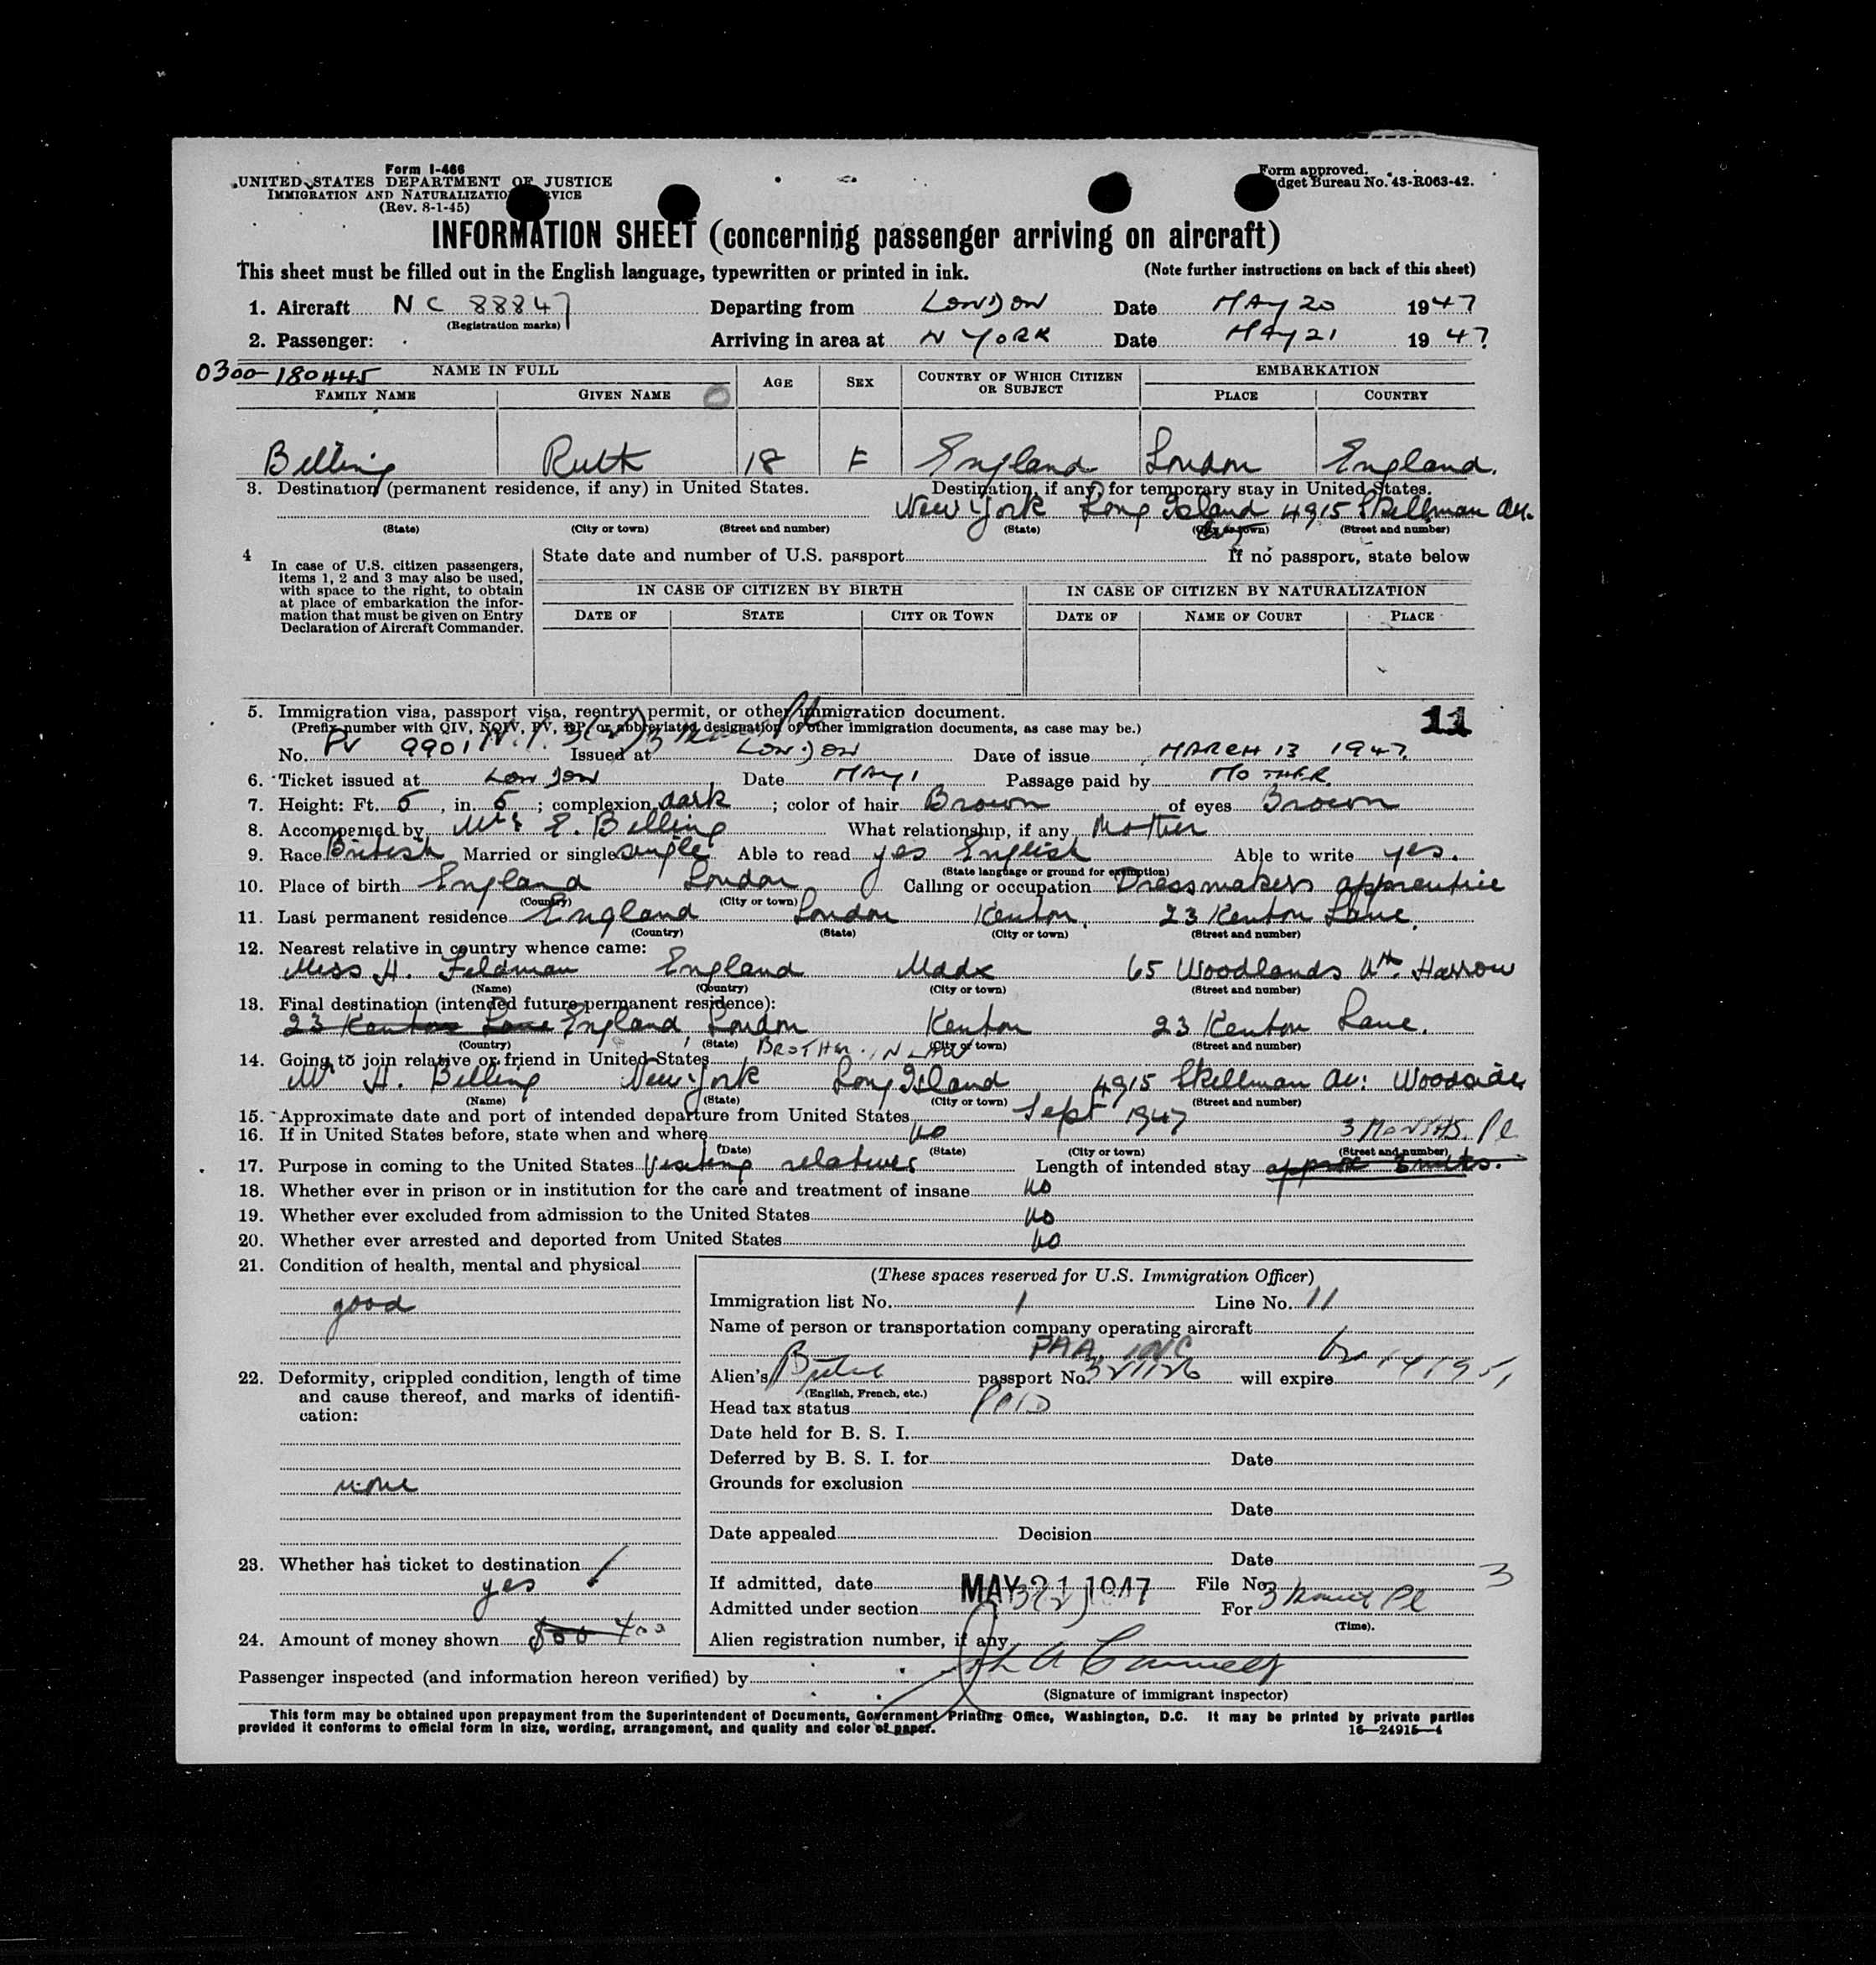 Form I-466
UNITED STATES DEPARTMENT OF JUSTICE
IMMIGRATION AND NATURALIZATION SERVICE
(Rev. 8-1-45)
Form approved.
Budget Bureau No. 43-R063-42.
INFORMATION SHEET (concerning passenger arriving on aircraft)
This sheet must be filled out in the English language, typewritten or printed in ink. (Note further instructions on back of this sheet)
1. Aircraft NC 88847 Departing from LONDON Date MAY 20 1947
(Registration marks)
2. Passenger: Arriving in area at N YORK Date MAY 21 1947
0300-180445 NAME IN FULL AGE SEX COUNTRY OF WHICH CITIZEN OR SUBJECT EMBARKATION
FAMILY NAME GIVEN NAME PLACE COUNTRY
Belling Ruth 18 F England London England.
3. Destination (permanent residence, if any) in United States. Destination, if any, for temporary stay in United States.
New York Long Island 4915 Skellman Av.
(State) (City or town) (Street and number) (State) (City or town) (Street and number)
4 In case of U.S. citizen passengers, items 1, 2 and 3 may also be used, with space to the right, to obtain at place of embarkation the information that must be given on Entry Declaration of Aircraft Commander.
State date and number of U.S. passport If no passport, state below
IN CASE OF CITIZEN BY BIRTH IN CASE OF CITIZEN BY NATURALIZATION
DATE OF STATE CITY OR TOWN DATE OF NAME OF COURT PLACE
5. Immigration visa, passport visa, reentry permit, or other immigration document. 11
(Prefix number with QIV, NQIV, PV, RP, or abbreviated designation of other immigration documents, as case may be.)
No. PV 9901 Issued at LONDON Date of issue MARCH 13 1947
6. Ticket issued at LONDON Date MAY 1 Passage paid by MOTHER
7. Height: Ft. 5, in. 5; complexion dark; color of hair Brown of eyes Brown
8. Accompanied by Mrs E. Belling What relationship, if any Mother
9. Race British Married or single single Able to read yes English Able to write yes.
(State language or ground for exemption)
10. Place of birth England London Calling or occupation Dressmakers apprentice
(Country) (City or town)
11. Last permanent residence England London Kenton, 23 Kenton Lane.
(Country) (State) (City or town) (Street and number)
12. Nearest relative in country whence came:
Miss H. Feldman England Middx 65 Woodlands Av. Harrow
(Name) (Country) (City or town) (Street and number)
13. Final destination (intended future permanent residence):
23 Kenton Lane England, London Kenton 23 Kenton Lane.
(Country) (State) (City or town) (Street and number)
14. Going to join relative or friend in United States BROTHER IN LAW
Mr H. Belling New York Long Island 4915 Skellman Av: Woodside
(Name) (State) (City or town) (Street and number)
15. Approximate date and port of intended departure from United States Sept 1947
16. If in United States before, state when and where no 3 MONTHS. Pl
(Date) (State) (City or town) (Street and number)
17. Purpose in coming to the United States Visiting relatives Length of intended stay approx 3 mnts.
18. Whether ever in prison or in institution for the care and treatment of insane no
19. Whether ever excluded from admission to the United States no
20. Whether ever arrested and deported from United States no
21. Condition of health, mental and physical
good
22. Deformity, crippled condition, length of time and cause thereof, and marks of identification:
none
23. Whether has ticket to destination
yes
24. Amount of money shown $00 400
(These spaces reserved for U.S. Immigration Officer)
Immigration list No. 1 Line No. 11
Name of person or transportation company operating aircraft
PAA. INC
Alien's passport No. 321126 will expire
(English, French, etc.)
Head tax status PAID
Date held for B. S. I.
Deferred by B. S. I. for Date
Grounds for exclusion
Date
Date appealed Decision
Date
If admitted, date MAY 21 1947 File No. 3
Admitted under section 3(2) For 3 Pl
(Time).
Alien registration number, if any
Passenger inspected (and information hereon verified) by
(Signature of immigrant inspector)
This form may be obtained upon prepayment from the Superintendent of Documents, Government Printing Office, Washington, D.C. It may be printed by private parties
provided it conforms to official form in size, wording, arrangement, and quality and color of paper. 16—24915-4